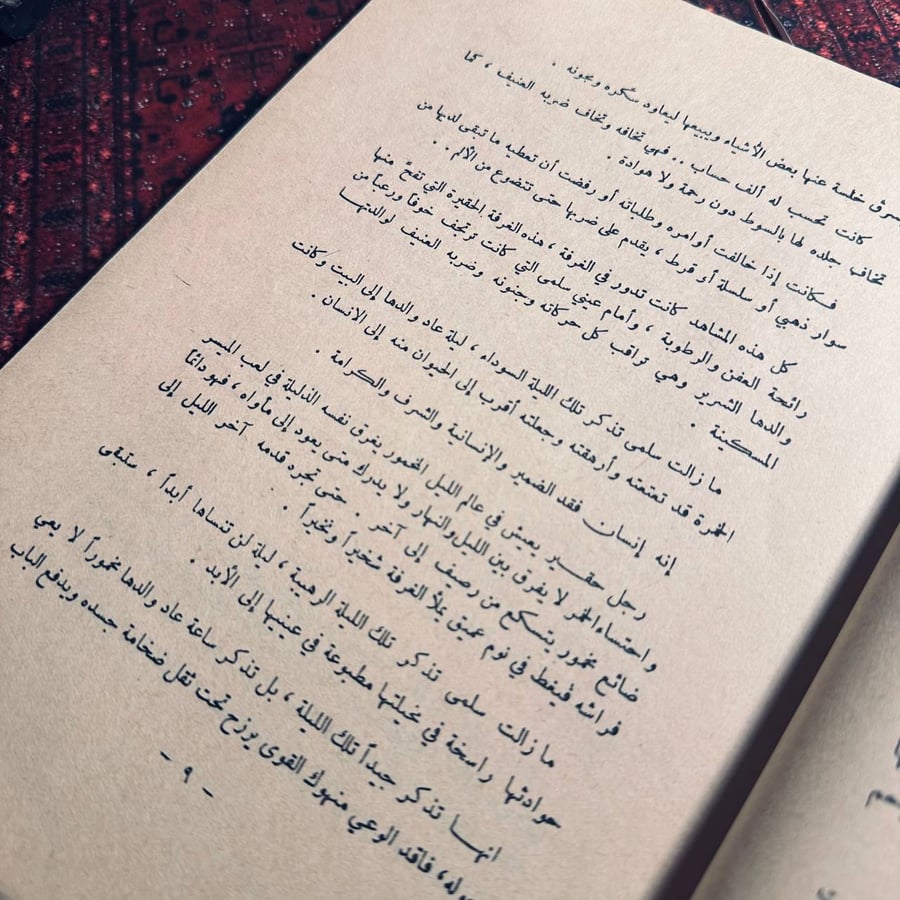 سرق خلسة عنها بعض الأشياء ويبيعها ليعاود سكره ومجونه .
كانت تحسب له ألف حساب .. فهي تخافه وتخاف ضربه العنيف ، كما
تخاف جلده لها بالسوط دون رحمة ولا هوادة .
فكانت إذا خالفت أوامره وطلباته أو رفضت أن تعطيه ما تبقى لديها من
سوار ذهبي أو سلسلة أو قرط ، يقدم على ضربها حتى تتضوع من الألم ..
كل هذه المشاهد كانت تدور في الغرفة ، هذه الغرفة الحقيرة التي تفح منها
رائحة العفن والرطوبة ، وأمام عيني سلمى التي كانت ترتجف خوفاً ورعباً من
والدها الشرير وهي تراقب كل حركاته وجنونه وضربه العنيف لوالدتها
المسكينة .
ما زالت سلمى تذكر تلك الليلة السوداء ، ليلة عاد والدها إلى البيت وكانت
الخمرة قد تعتعته وأرهقته وجعلته أقرب إلى الحيوان منه إلى الانسان .
إنه إنسان فقد الضمير والإنسانية والشرف والكرامة .
رجل حقير يعيش في عالم الليل المخمور يغرق نفسه الذليلة في لعب الميسر
واحتساء الخمر لا يفرق بين الليل والنهار ولا يدرك متى يعود إلى مأواه ، فهو دائماً
ضائع مخمور يتسكع من رصيف إلى آخر . حتى تجره قدمه آخر الليل إلى
فراشه فيغط في نوم عميق يملأ الغرفة شخيراً ونخيراً .
ما زالت سلمى تذكر تلك الليلة الرهيبة ، ليلة لن تنساها أبداً ، ستبقى
حوادثها راسخة في مخيلتها مطبوعة في عينيها إلى الأبد .
انها تذكر جيداً تلك الليلة ، بل تذكر ساعة عاد والدها مخموراً لا يعي
، فاقد الوعي منهوك القوى يرزح تحت ثقل ضخامة جسده ويدفع الباب
- ٩ -